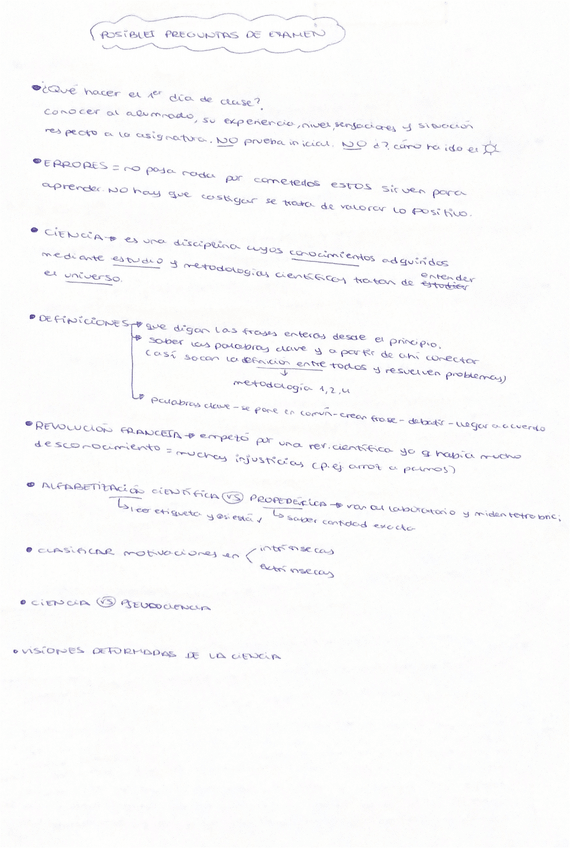 POSIBLES PREGUNTAS DE EXAMEN
• ¿Qué hacer el 1er día de clase?
conocer al alumnado, su experiencia, nivel, sensaciones y situación
respecto a la asignatura. NO prueba inicial. NO d? cómo ha ido el
• ERRORES = no pasa nada por cometerlos estos sirven para
aprender. NO hay que castigar se trata de valorar lo positivo.
• CIENCIA → es una disciplina cuyos conocimientos adquiridos
mediante estudio y metodologías científicas tratan de entender
el universo.
• DEFINICIONES → que digan las frases enteras desde el principio.
→ saber las palabras clave y a partir de ahí conectar
(así sacan la definición entre todos y resuelven problemas)
metodología 1, 2, 4
→ palabras clave - se pone en común - crean frase - debatir - llegar a acuerdo
• REVOLUCIÓN FRANCESA → empezó por una rev. científica ya q había mucho
desconocimiento = muchas injusticias (p.ej arroz a palmos)
• ALFABETIZACIÓN CIENTÍFICA VS PROPEDÉUTICA → van al laboratorio y miden tetrabric
leer etiqueta y si está ✓ saber cantidad exacta
• CLASIFICAR motivaciones en intrínsecas
extrínsecas
• CIENCIA VS PSEUDOCIENCIA
• VISIONES DEFORMADAS DE LA CIENCIA